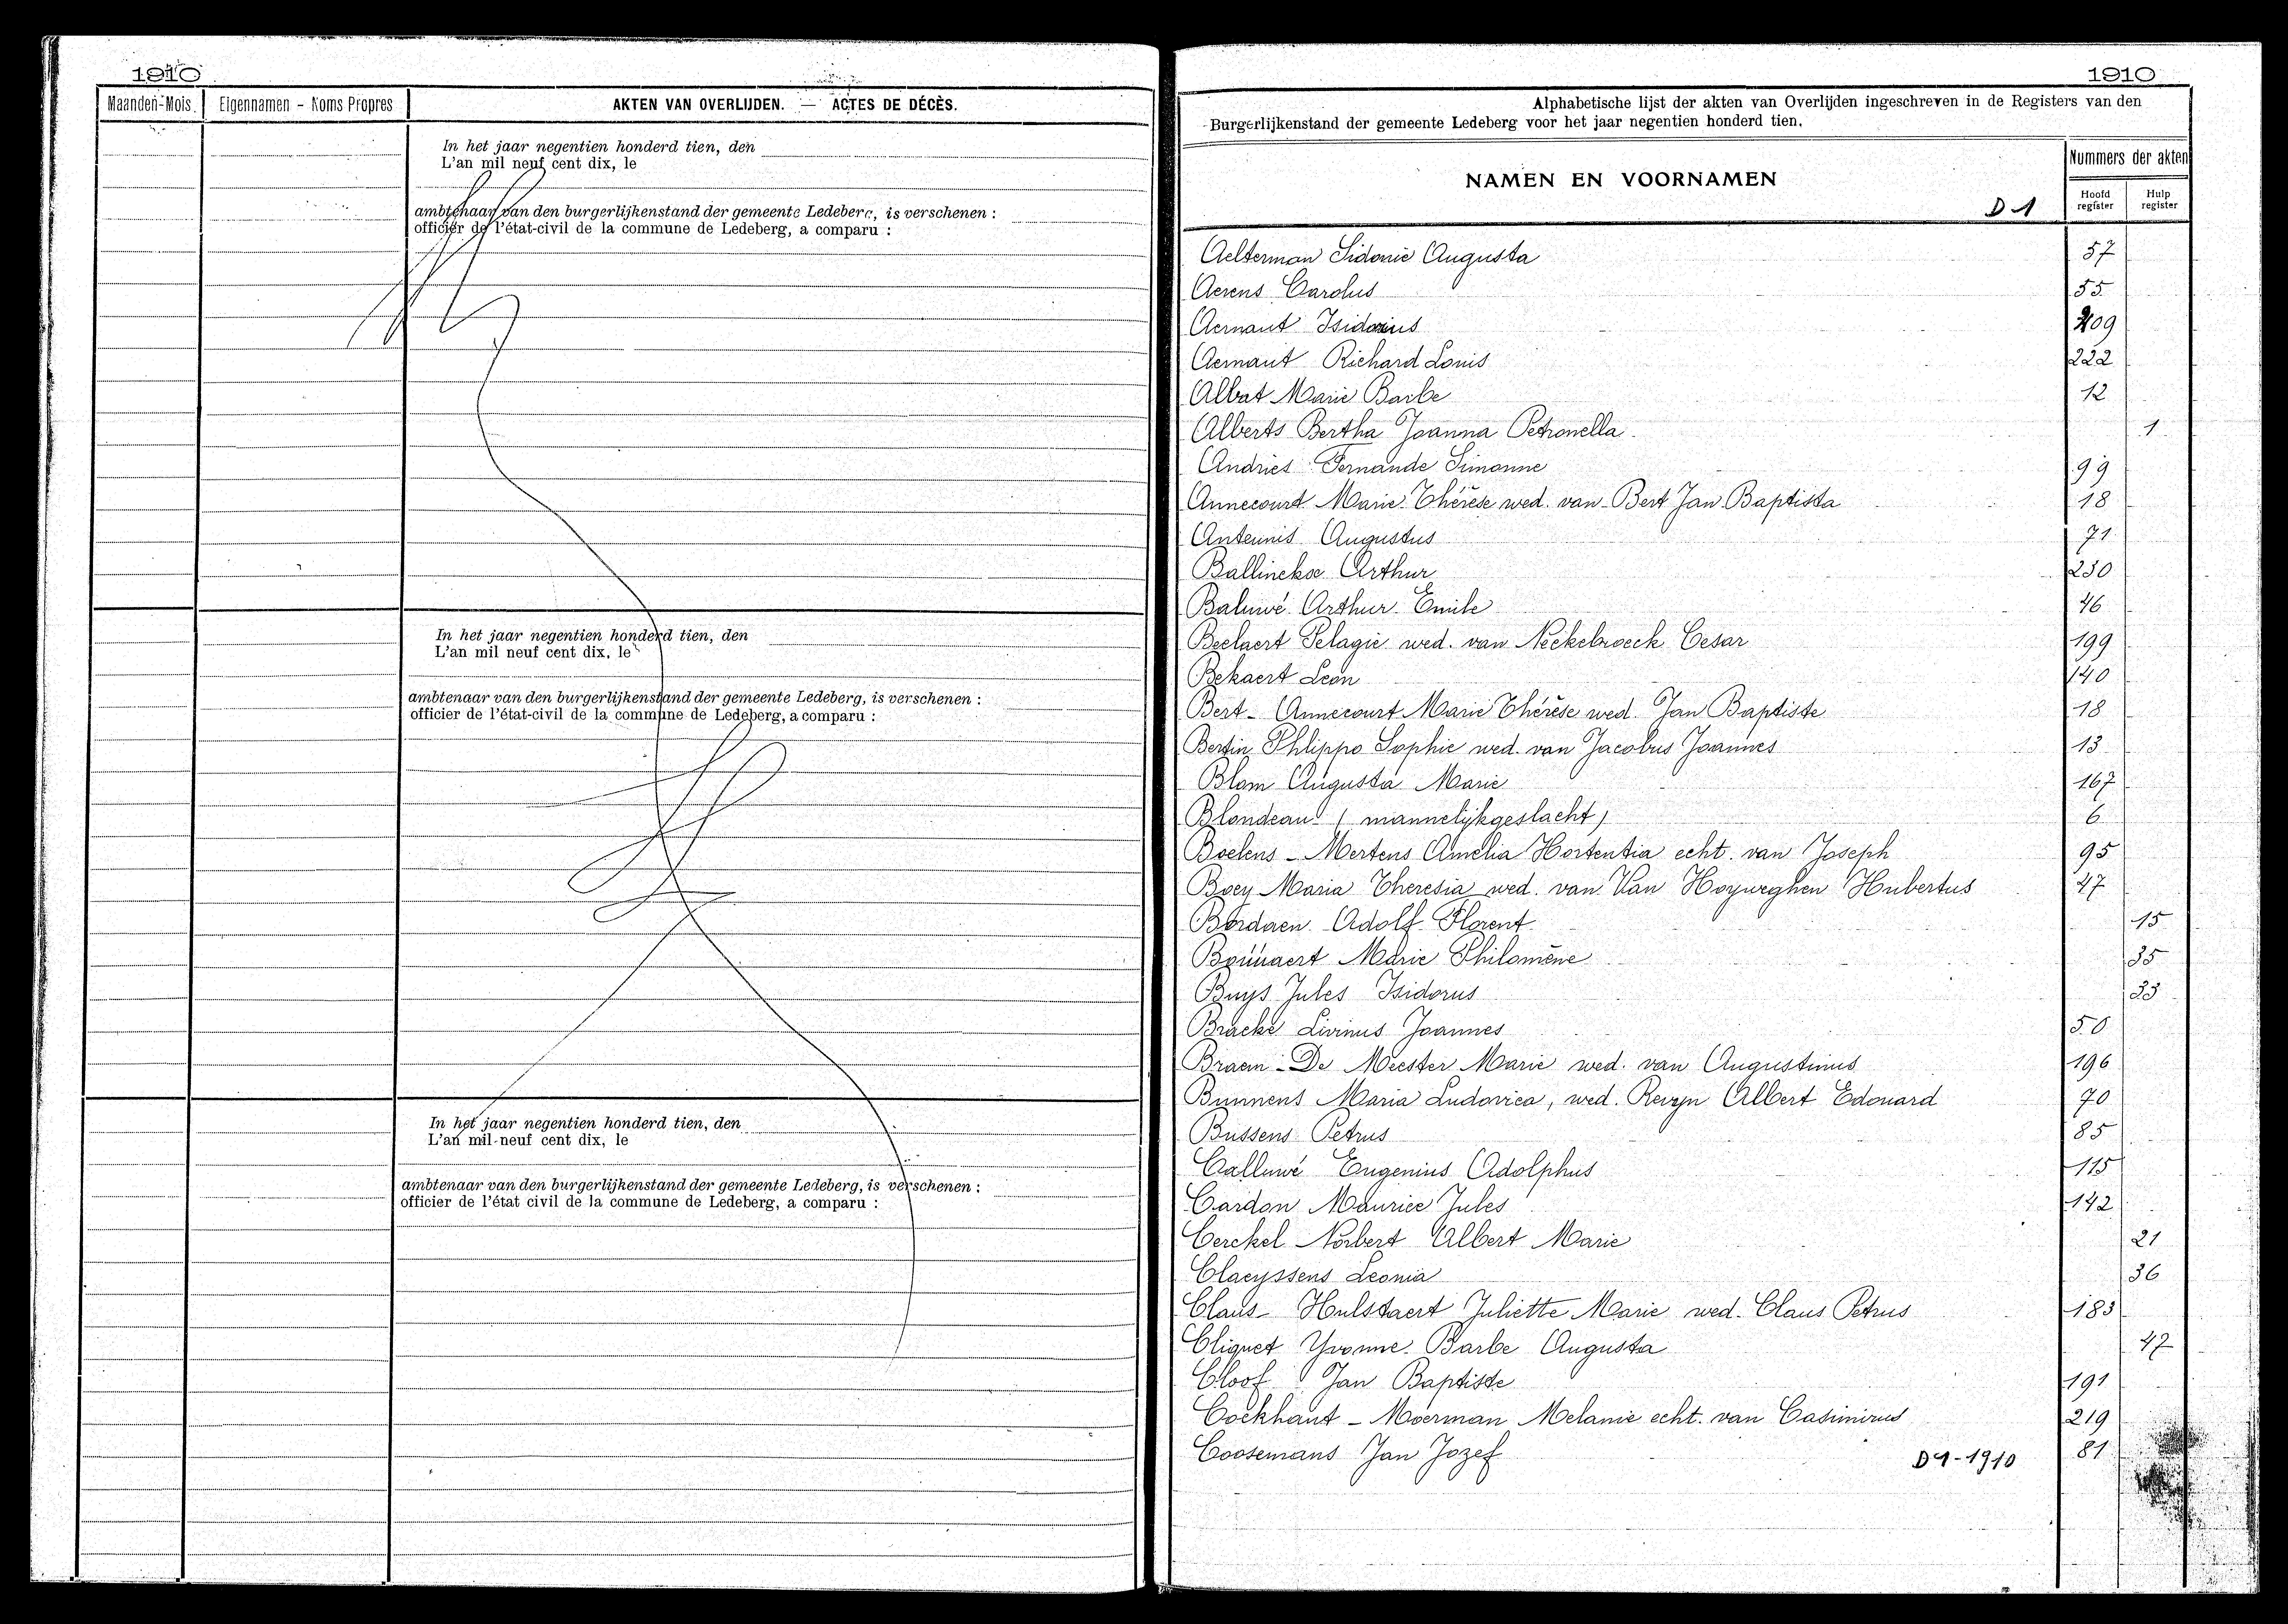 1910
Maanden-Mois. Eigennamen - Noms Propres AKTEN VAN OVERLIJDEN. — ACTES DE DÉCÈS.
In het jaar negentien honderd tien, den
L'an mil neuf cent dix, le
ambtenaar van den burgerlijkenstand der gemeente Ledeberg, is verschenen :
officier de l'état-civil de la commune de Ledeberg, a comparu :
In het jaar negentien honderd tien, den
L'an mil neuf cent dix, le
ambtenaar van den burgerlijkenstand der gemeente Ledeberg, is verschenen :
officier de l'état-civil de la commune de Ledeberg, a comparu :
In het jaar negentien honderd tien, den
L'an mil neuf cent dix, le
ambtenaar van den burgerlijkenstand der gemeente Ledeberg, is verschenen :
officier de l'état civil de la commune de Ledeberg, a comparu :
1910
Alphabetische lijst der akten van Overlijden ingeschreven in de Registers van den
Burgerlijkenstand der gemeente Ledeberg voor het jaar negentien honderd tien.
NAMEN EN VOORNAMEN
Nummers der akten
Hoofd register Hulp register
D1
Aelterman Sidonie Augusta 57
Aerens Carolus 55
Aernaut Isidorius 209
Aernaut Richard Louis 222
Albat Marie Barbe 12
Alberts Bertha Joanna Petronella 1
Andries Fernande Simonne 99
Annecourt Marie Thérèse wed. van Bert Jan Baptista 18
Anteunis Augustus 71
Ballinckx Arthur 230
Baluwé Arthur Emile 46
Beelaert Pelagie wed. van Neckebroeck Cesar 199
Bekaert Leon 140
Bert - Annecourt Marie Thérèse wed. Jan Baptiste 18
Bertin Phlippo Sophie wed. van Jacobus Joannes 13
Blom Augusta Marie 167
Blondeau (mannelijkgeslacht) 6
Boelens - Mertens Amelia Hortentia echt. van Joseph 95
Boey Maria Theresia wed. van Van Hoyweghen Hubertus 47
Bordaen Adolf Florent 15
Marie Philomène 35
Buys Jules Isidorus 33
Bracke Livinus Joannes 50
Braem - De Meester Marie wed. van Augustinus 196
Bunnens Maria Ludovica, wed. Revyn Albert Edouard 70
Bussens Petrus 85
Calluwé Eugenius Adolphus 115
Cardon Maurice Jules 142
Cerckel Norbert Albert Marie 21
Claeyssens Leonia 36
Claus - Hulstaert Juliette Marie wed. Claus Petrus 183
Cliquet Yvonne Barbe Augusta 47
Cloof Jan Baptiste 191
Cockhaut - Moerman Melanie echt. van Casimirus 219
Coosemans Jan Jozef 81
D1-1910